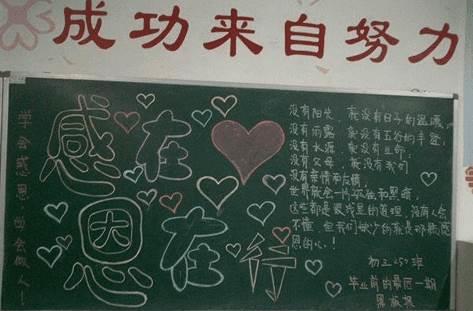 成功来自努力
学会感恩·学会做人！
感在
恩在行
没有阳光 就没有日子的温暖
没有雨露 就没有五谷的丰登，
没有水源 就没有生命，
没有父母，就没有我们
没有亲情和友情，
世界就会一片孤独和黑暗，
这些都是的道理，没有人会
不懂，但我们缺少的就是那颗感
恩的心！
初三257班
毕业前的最后一期
黑板报